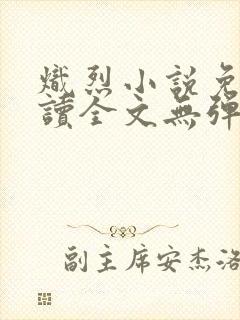 熾烈小説免
讀全文無彈
副主席安杰洛